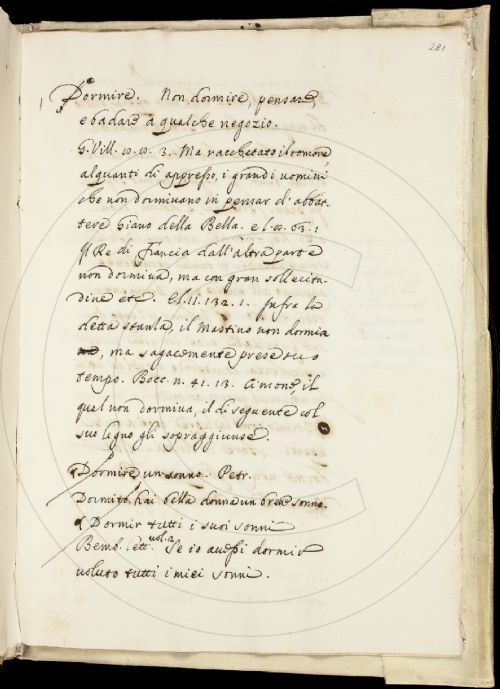 281
Dormire. Non dormire, pensare,
e badare a qualche negozio.
G. Vill. 3. Ma racchetato il romore,
alquanti di appresso, i grandi uomini
che non dormivano in pensar d'abbat-
tere Giano della Bella. e l. 63. 1
Il Re di Francia dall'altra parte
non dormiva, ma con gran sollecitu-
dine etc. E l. 11. 132. 1. Infra la
detta stanza, il Mastino non dormia
, ma sagacemente prese suo
tempo. Bocc. n. 41. 13. Cimone, il
qual non dormiva, il dì seguente col
suo legno gli sopraggiunse.
Dormire un sonno. Petr.
Dormito hai bella donna un breve sonno.
Dormir tutti i suoi sonni
Bemb. lett. vol. 2. Se io avessi dormir
voluto tutti i miei sonni.